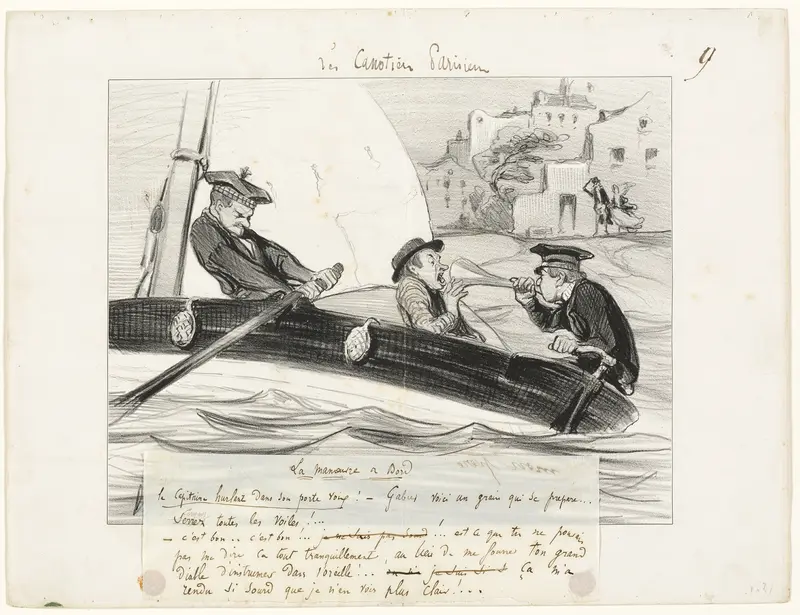 Les Canotiers Parisiens
9
La manœuvre a Bord
le Capitaine hurlant dans son porte voix! - Gabus voici un grain qui se prepare...
Serrez toutes les voiles!...
- c'est bon.. c'est bon!... je ne suis pas sourd!... est ce que tu ne pouvais
pas me dire ça tout tranquillement, au lieu de me fourrer ton grand
diable d'instrument dans l'oreille!... je suis si Ça m'a
rendu si sourd que je n'en vois plus clair!...